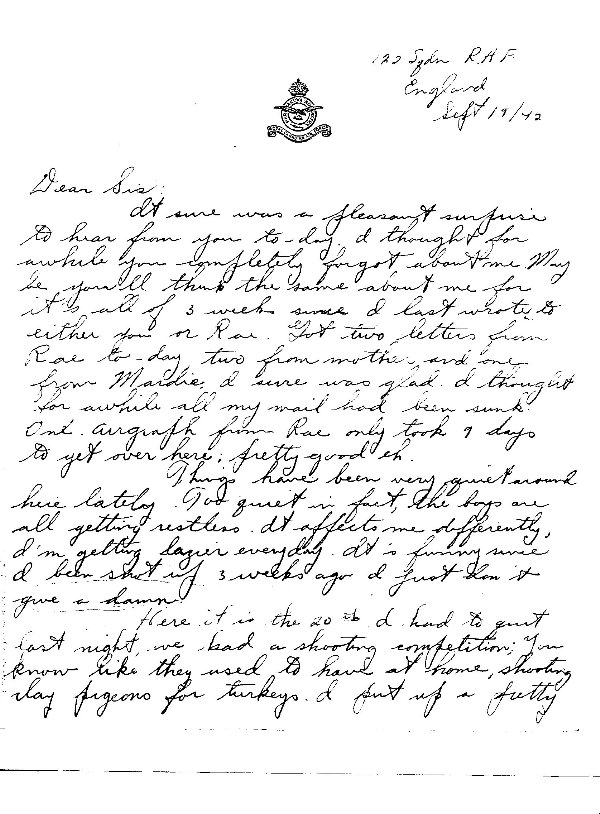 122 Sqdn R.A.F.
England
Sept 19/42
Dear Sis:
It sure was a pleasant surprise
to hear from you to-day I thought for
awhile you completely forgot about me May
be you'll think the same about me for
it's all of 3 weeks since I last wrote to
either you or Rae. Got two letters from
Rae to-day, two from mother and one
from Mardie, I sure was glad. I thought
for awhile all my mail had been sunk.
One Airgraph from Rae only took 9 days
to get over here; pretty good eh.
Things have been very quiet around
here lately. Too quiet in fact, the boys are
all getting restless. It affects me differently,
I'm getting lazier everyday. It is funny since
I been shot up 3 weeks ago I just don't
give a damn.
Here it is the 20th I had to quit
last night, we had a shooting competition; You
know like they used to have at home, shooting
clay pigeons for turkeys. I put up a pretty